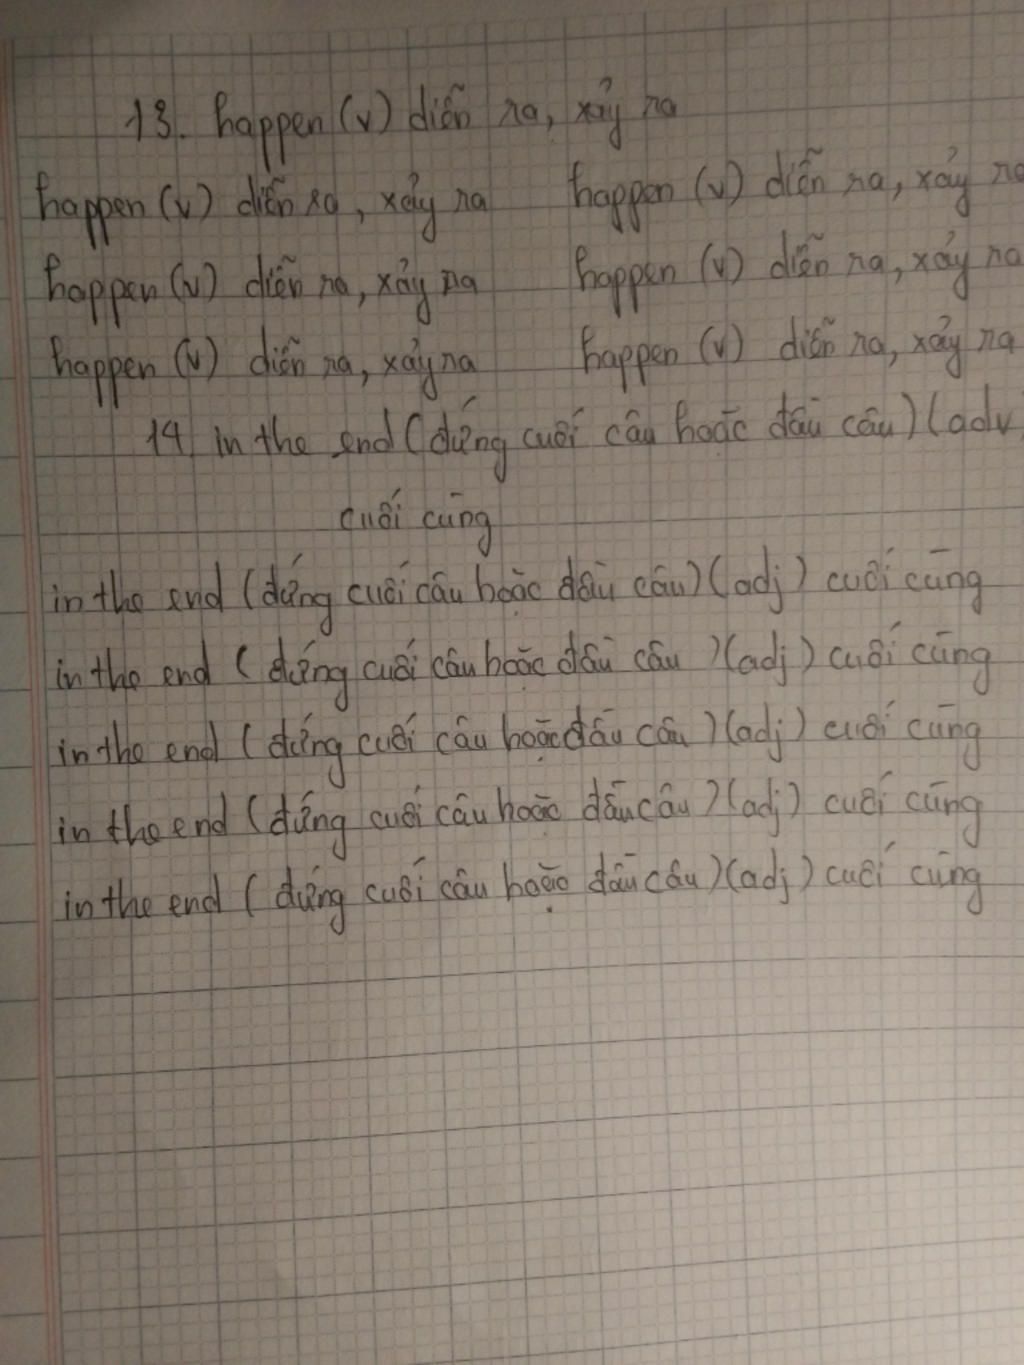 13. happen (v) diễn ra, xảy ra
happen (v) diễn ra, xảy ra happen (v) diễn ra, xảy ra
happen (v) diễn ra, xảy ra happen (v) diễn ra, xảy ra
happen (v) diễn ra, xảy ra happen (v) diễn ra, xảy ra
14 in the end (đứng cuối câu hoặc đầu câu) (adv
cuối cùng
in the end (đứng cuối câu hoặc đầu câu) (adj) cuối cùng
in the end (đứng cuối câu hoặc đầu câu) (adj) cuối cùng
in the end (đứng cuối câu hoặc đầu câu) (adj) cuối cùng
in the end (đứng cuối câu hoặc đầu câu) (adj) cuối cùng
in the end (đứng cuối câu hoặc đầu câu) (adj) cuối cùng